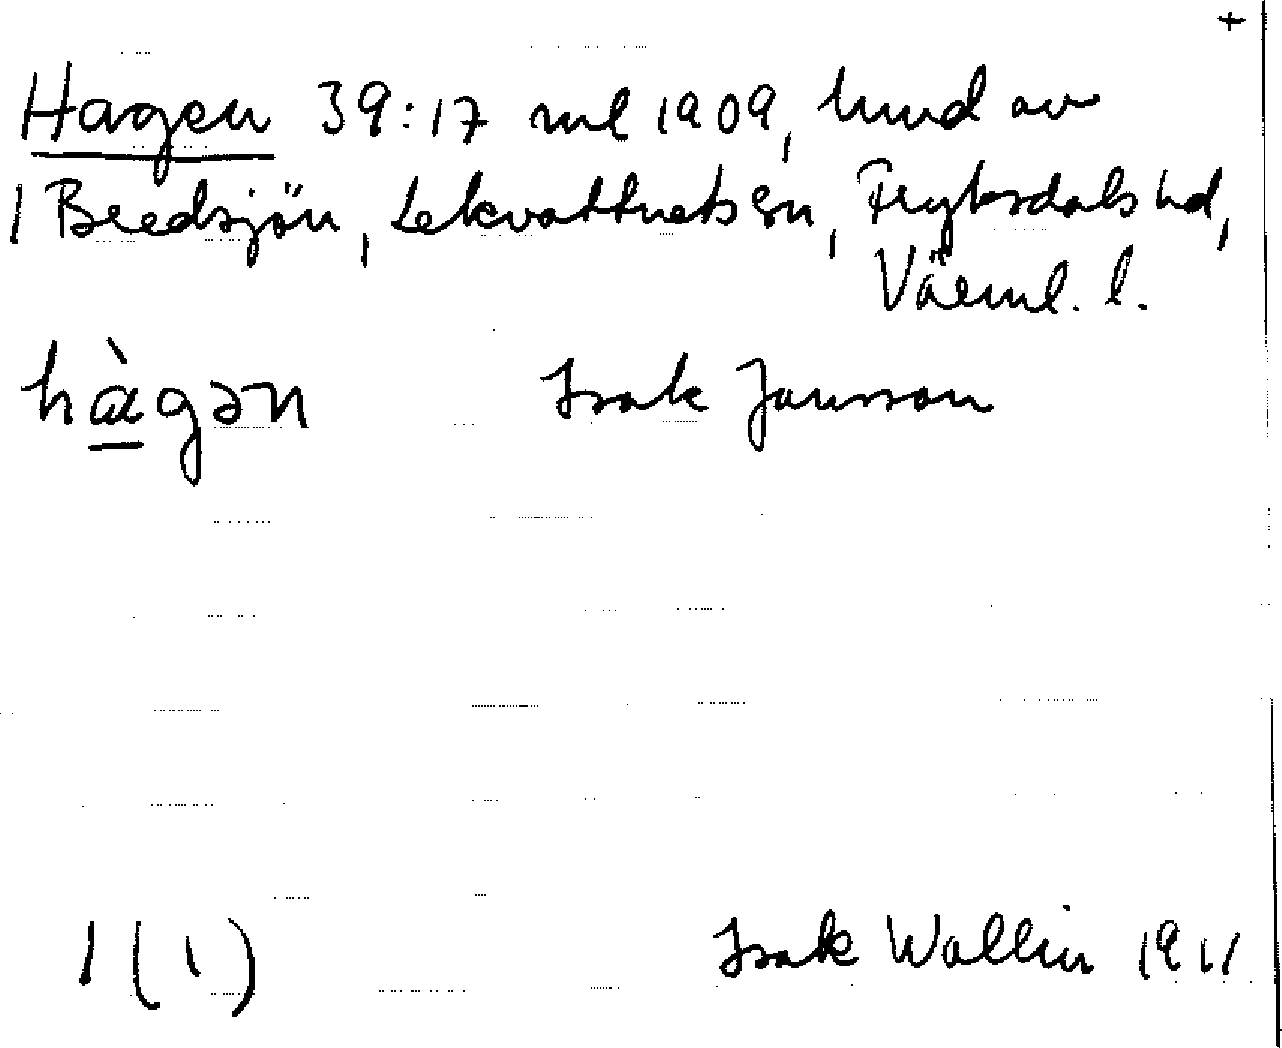 +
Hagen 39:17 uml 1909, hmd av
1 Bredsjön, Lekvattnets sn, Fryksdals hd,
Värml. l.
hàgən Isak Jansson
1 (1) Isak Wallin 1911